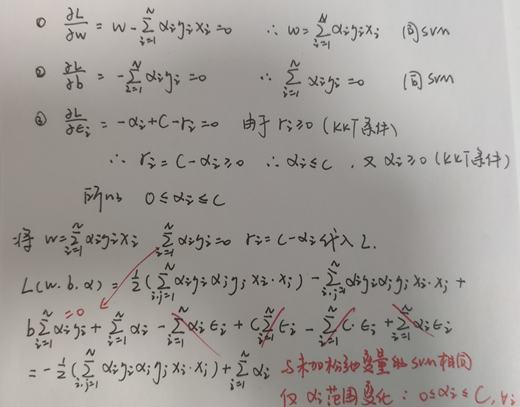 ① ∂L/∂w = w - ∑_{i=1}^{N} αᵢyᵢxᵢ = 0 ∴ w = ∑_{i=1}^{N} αᵢyᵢxᵢ 同svm
② ∂L/∂b = -∑_{i=1}^{N} αᵢyᵢ = 0 ∴ ∑_{i=1}^{N} αᵢyᵢ = 0 同svm
③ ∂L/∂εᵢ = -αᵢ + C - rᵢ = 0 由于 rᵢ ≥ 0 (KKT条件)
∴ rᵢ = C - αᵢ ≥ 0 ∴ αᵢ ≤ C , 又 αᵢ ≥ 0 (KKT条件)
所以 0 ≤ αᵢ ≤ C
将 w = ∑_{i=1}^{N} αᵢyᵢxᵢ ∑_{i=1}^{N} αᵢyᵢ = 0 rᵢ = C - αᵢ 代入 L.
L(w.b.α) = 1/2 (∑_{i.j=1}^{N} αᵢyᵢαⱼyⱼxᵢ·xⱼ) - ∑_{i.j=1}^{N} αᵢyᵢαⱼyⱼxᵢ·xⱼ +
b∑_{i=1}^{N} αᵢyᵢ + ∑_{i=1}^{N} αᵢ - ∑_{i=1}^{N} αᵢεᵢ + C∑_{i=1}^{N} εᵢ - ∑_{i=1}^{N} C·εᵢ + ∑_{i=1}^{N} αᵢεᵢ
=0
= -1/2 (∑_{i.j=1}^{N} αᵢyᵢαⱼyⱼxᵢ·xⱼ) + ∑_{i=1}^{N} αᵢ 与未加松弛变量的svm相同
仅 αᵢ 范围变化: 0≤αᵢ≤C, ∀i